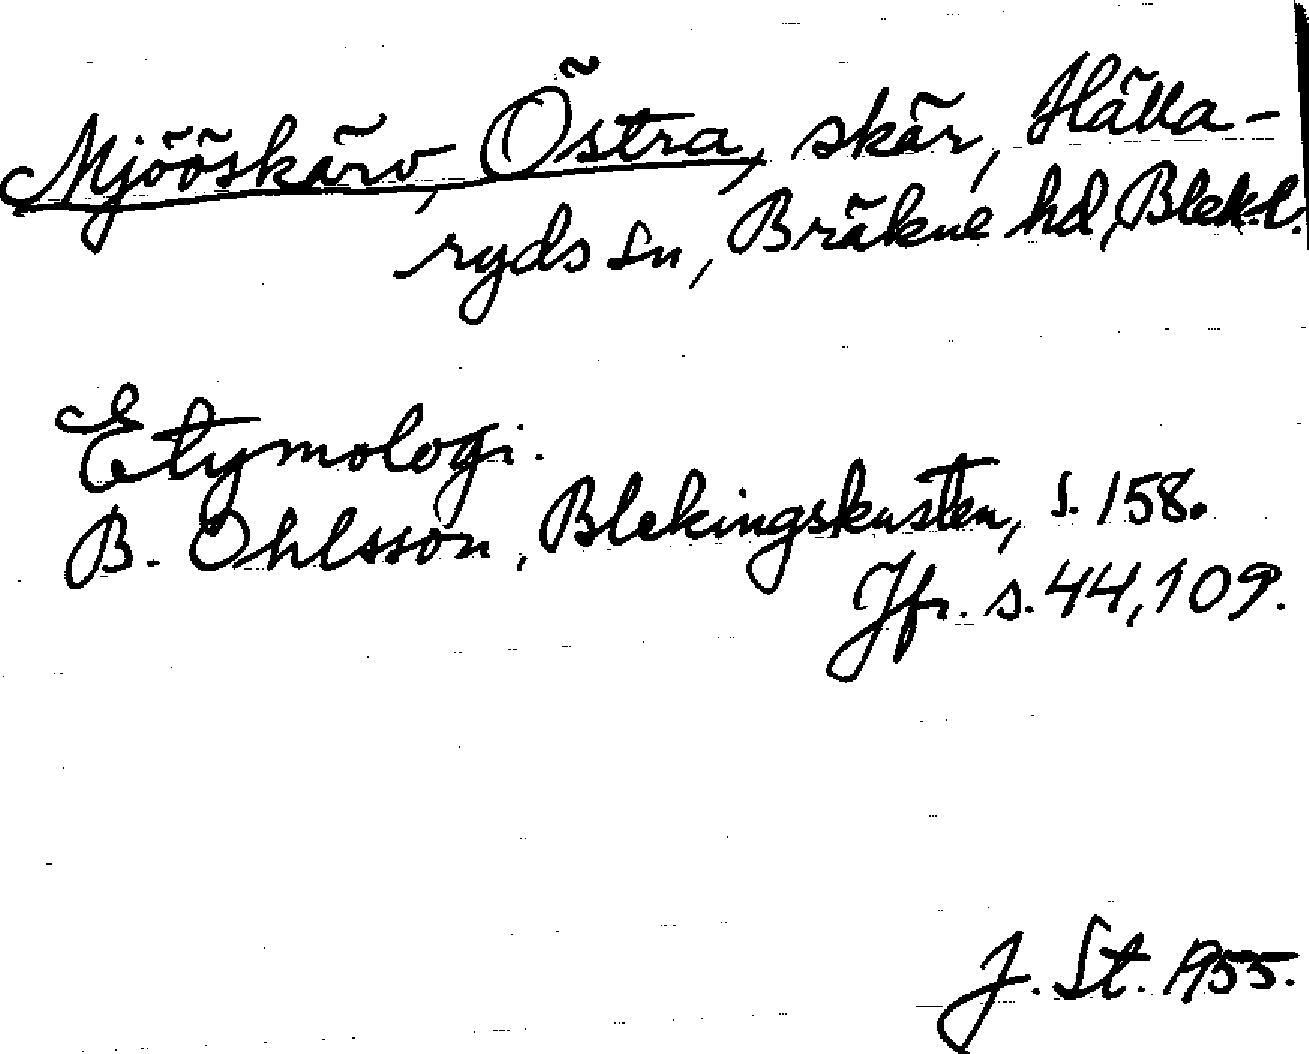 Mjööskärv, Östra, skär, Hälla-
ryds sn, Bräkne hd, Blek.l.
Etymologi.
B. Ohlsson, Blekingskusten, s. 158.
Jfr. s. 44, 109.
J. St. 1955.